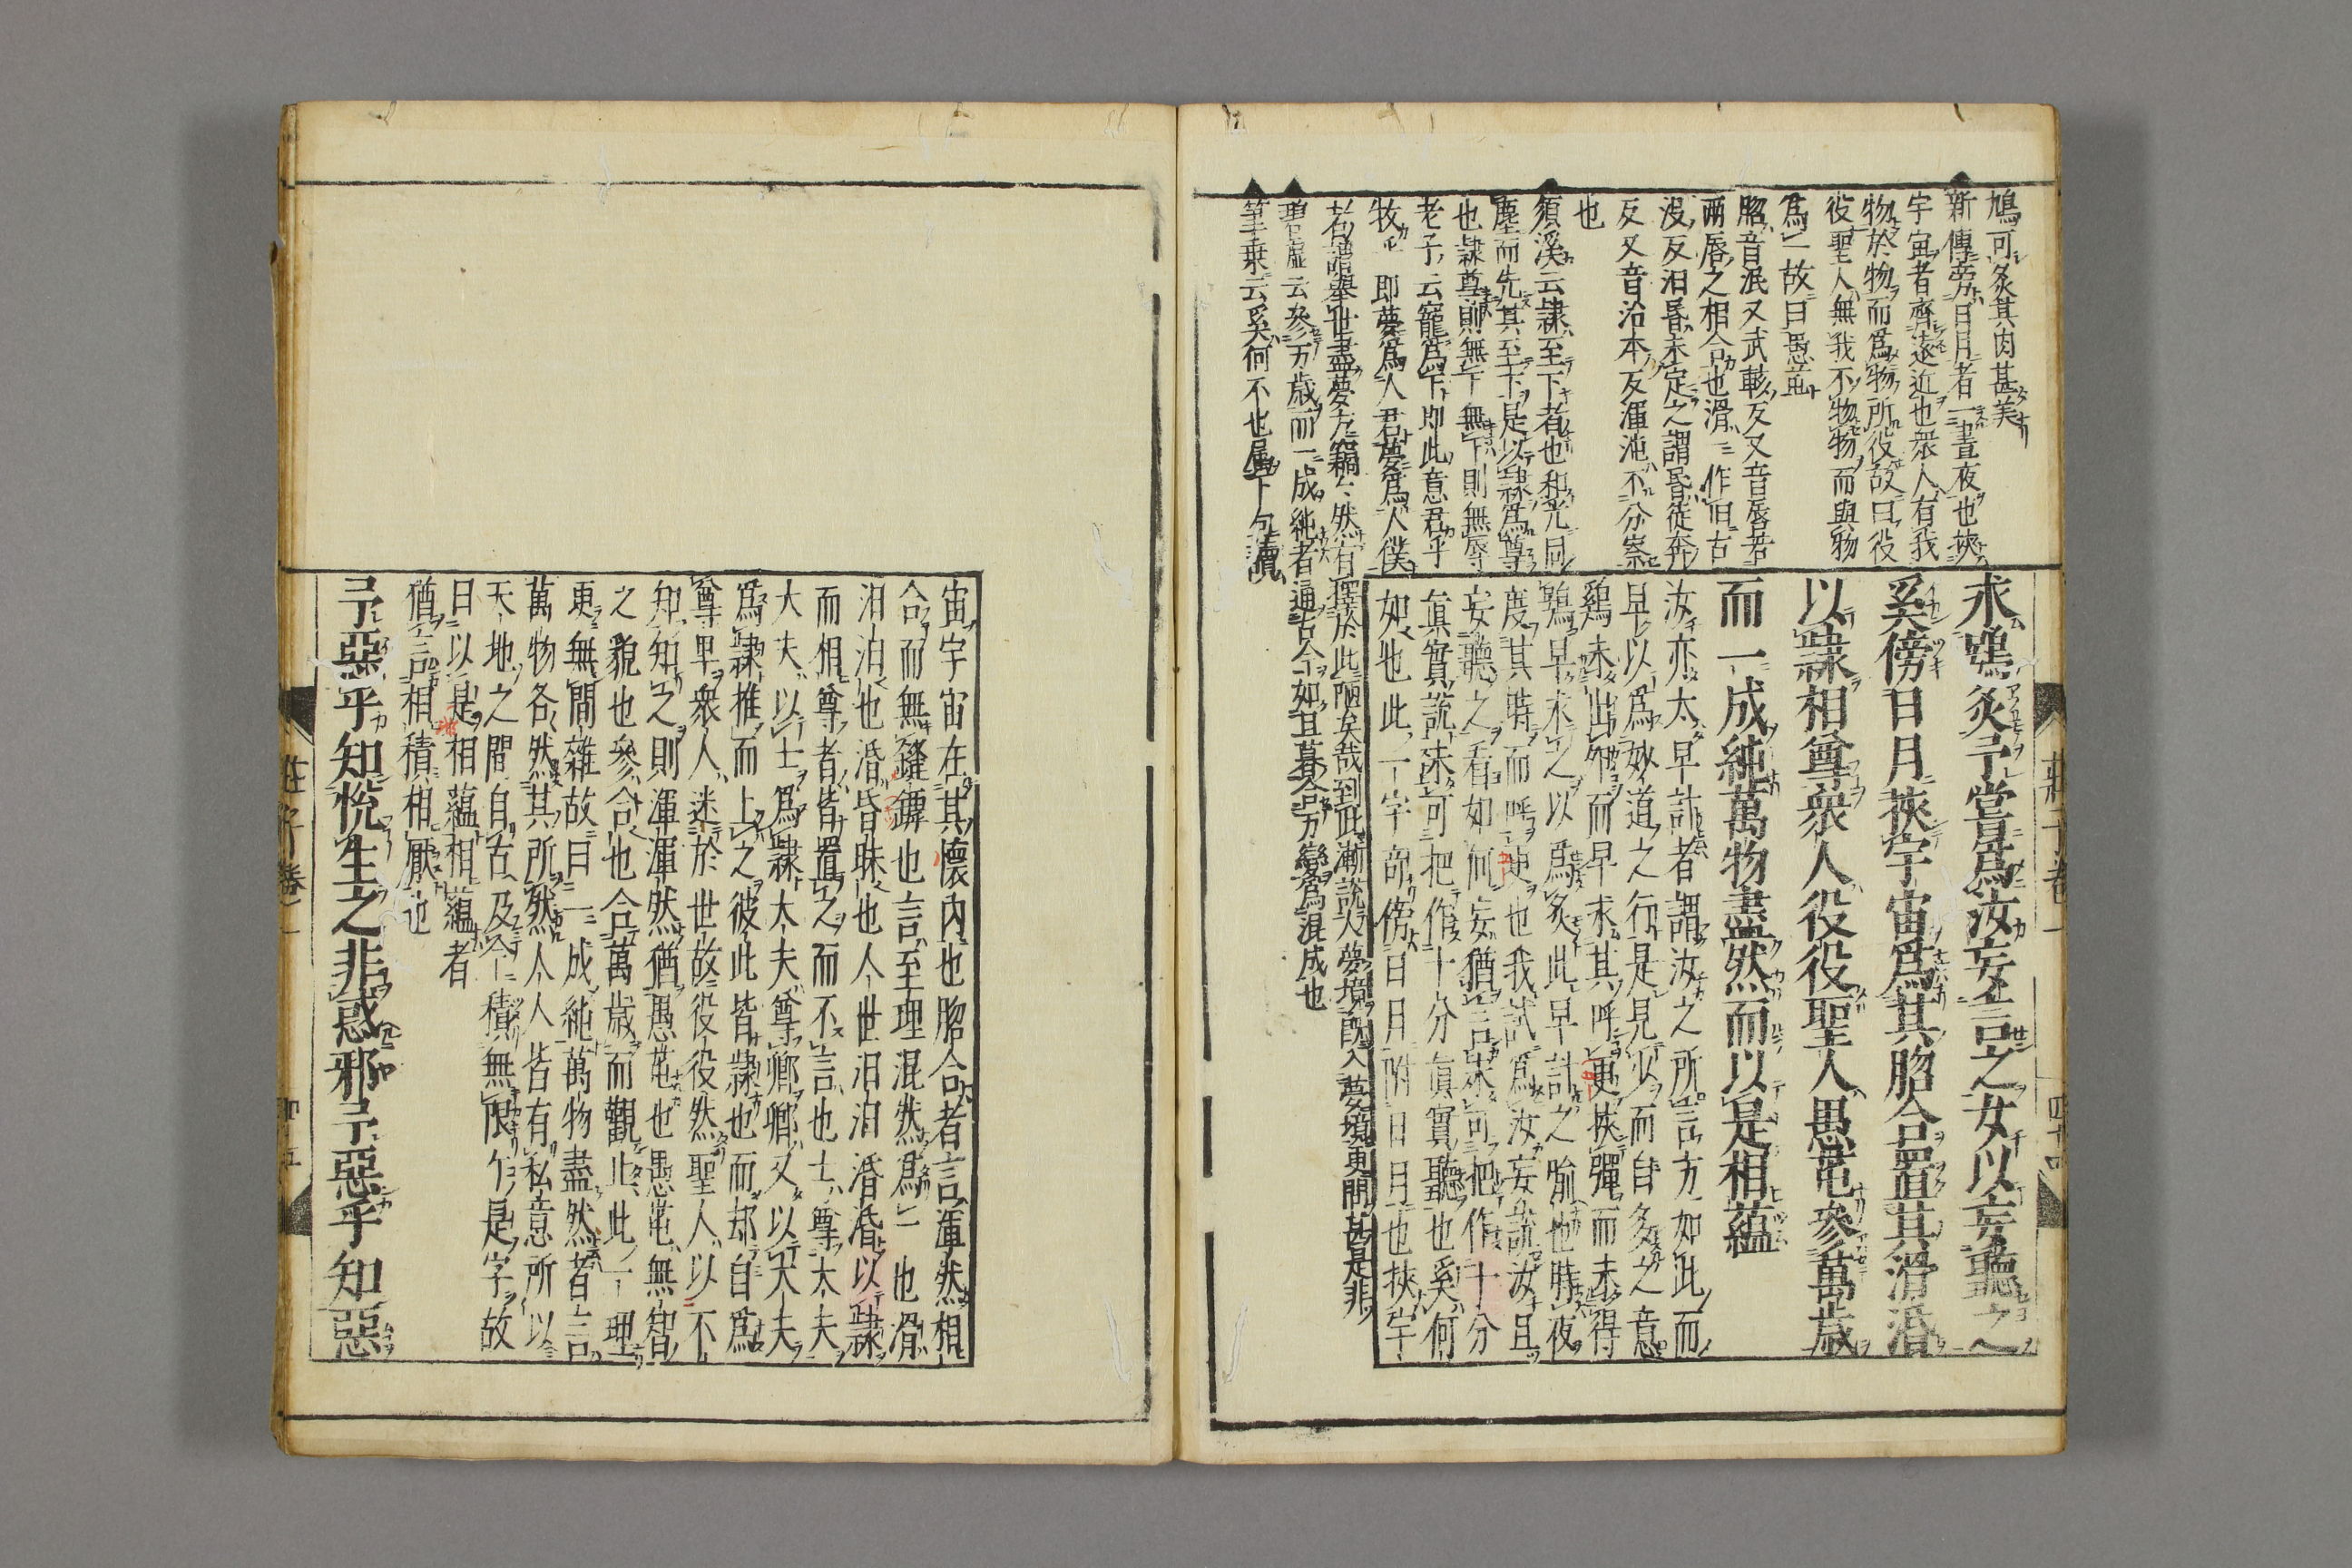 鳩可炙其肉甚美
新傳旁日月者一晝夜也挾
宇宙者齊遠近也衆人有我
物於物而爲物所役故曰役
役聖人無我不物物而與物
爲一故曰愚芚
脗音泯又武軫反又音唇若
兩唇之相合也滑一作汩古
沒反汩昬未定之謂昬徒奔
反又音治本反渾沌不分察
也
須溪云隷至下者也和光同
塵而先其至下是以隷爲尊
也隷尊則無下無下則無辱
老子云寵爲下即此意君乎
牧乎即夢爲人君夢爲人僕
者謂擧世盡夢方竊竊然有擇於此陋矣哉到此漸說人夢境旣入夢境更問甚是非
碧虛云參万歲而一成純者通古今如旦暮合万變爲混成也
筆乗云奚何不也屬下句讀
求鴞炙予嘗爲汝妄言之女以妄聽之
奚傍日月挾宇宙爲其脗合置其滑涽
以隷相尊衆人役役聖人愚芚參萬歲
而一成純萬物盡然而以是相蘊
汝亦太早計者謂汝之所言方如此而
早以爲妙道之行是見少而自多之意
鷄未出卵而早求其呼更挾彈而未得
鴞早求之以爲炙此早計之喻也時夜
度其時而呼更也我試爲汝妄說汝且
妄聽之看如何妄猶言未可把作十分
眞實說未可把作十分眞實聽也奚何
如也此一字奇傍日月附日月也挾宇
莊子卷一
四十四
宙宇宙在其懷內也脗合者言渾然相
合而無縫罅也言至理混然爲一也滑
汩汩也涽昏昧也人世汩汩涽涽以隷
而相尊者皆置之而不言也士尊大夫
大夫以士爲隷大夫尊卿卿又以大夫
爲隷推而上之彼此皆隷也而却自爲
尊卑衆人迷於世故役役然聖人以不
知知之則渾渾然猶愚芚也愚芚無智
之貌也參合也合萬歲而觀止此一理
更無間雜故曰一成純萬物盡然者言
萬物各然其所然人人皆有私意所以
天地之間自古及今積無限个是字故
曰以是相蘊相蘊者
猶言相積相厭也
予惡乎知悅生之非惑邪予惡乎知惡
莊子卷一
四十五